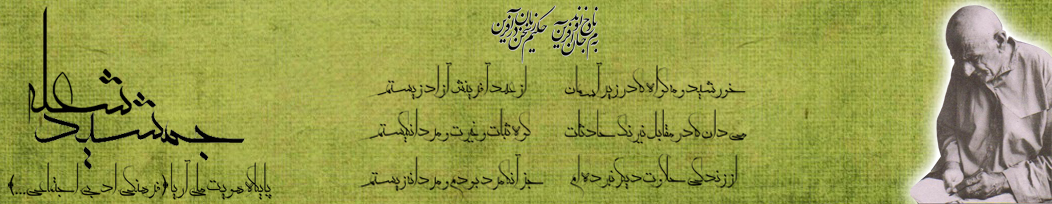 به نام خداوند جان آفرین حکیم سخن در زبان آفرین
خورشید و مه گواه که در زیر آسمان از عهد آفرینش آزاد زیستم
می دان که در مقابل نیرنگ حادثات کوه ثبات و غیرت و مردانگیستم
از زندگی حلاوت دیگر نبرده ام جز آنکه مرد بودم و مردانه زیستم
جمشید شعله
پایگاه هویت ملی آریا (فرهنگی ادبی اجتماعی...)